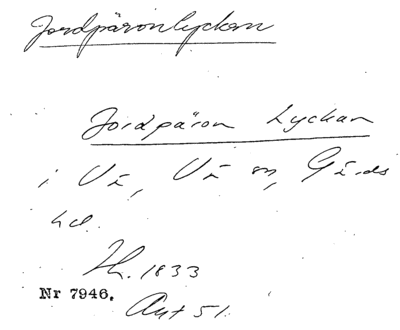 Jordpäronlyckan
Jordpäron Lyckan
i Vä, Vä sn, Gärds
hd.
Th. 1833
Nr 7946.
Avt 51.